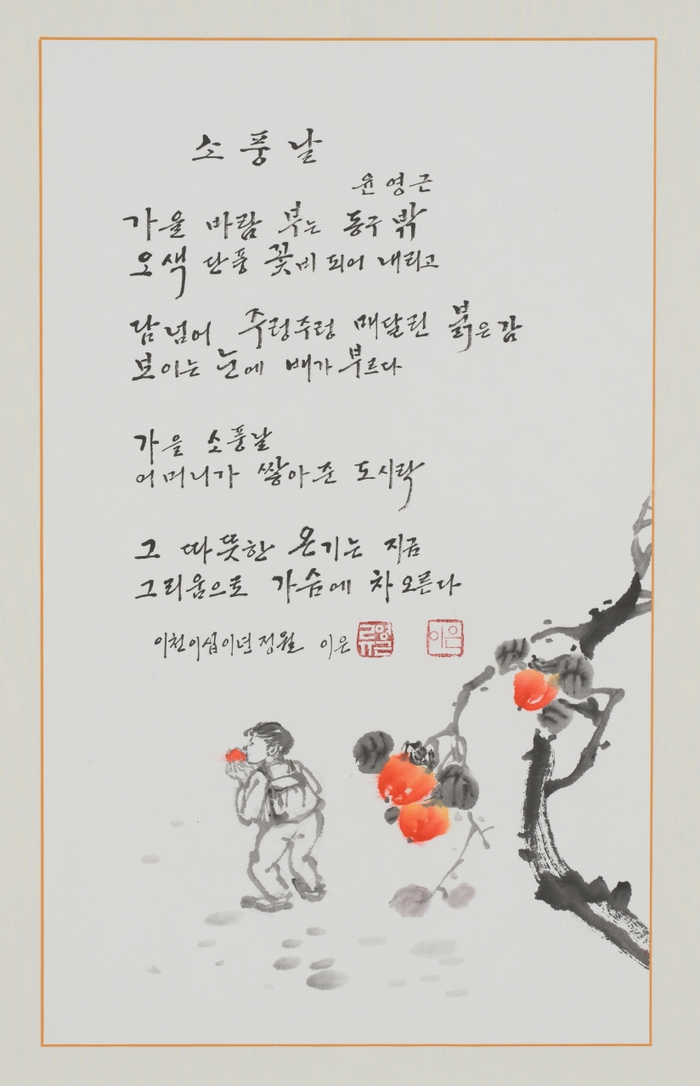 소풍날
윤영근
가을 바람 부는 동구 밖
오색 단풍 꽃비 되어 내리고
담 넘어 주렁주렁 매달린 붉은 감
보이는 눈에 배가 부르다
가을 소풍날
어머니가 쌓아 준 도시락
그 따뜻한 온기는 지금
그리움으로 가슴에 차오른다
이천이십이년 정월 이은
이은